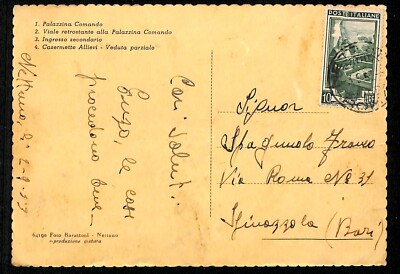 1. Palazzina Comando
2. Viale retrostante alla Palazzina Comando
3. Ingresso secondario
4. Casermette Allievi - Veduta parziale
Nettuno,
Cari saluti.
le cose
procedono bene
64190 Foto Nettuno
riproduzione vietata
POSTE ITALIANE
10
Signor
Spagnuolo Franco
Via Roma No 31
Spinazzola (Bari)